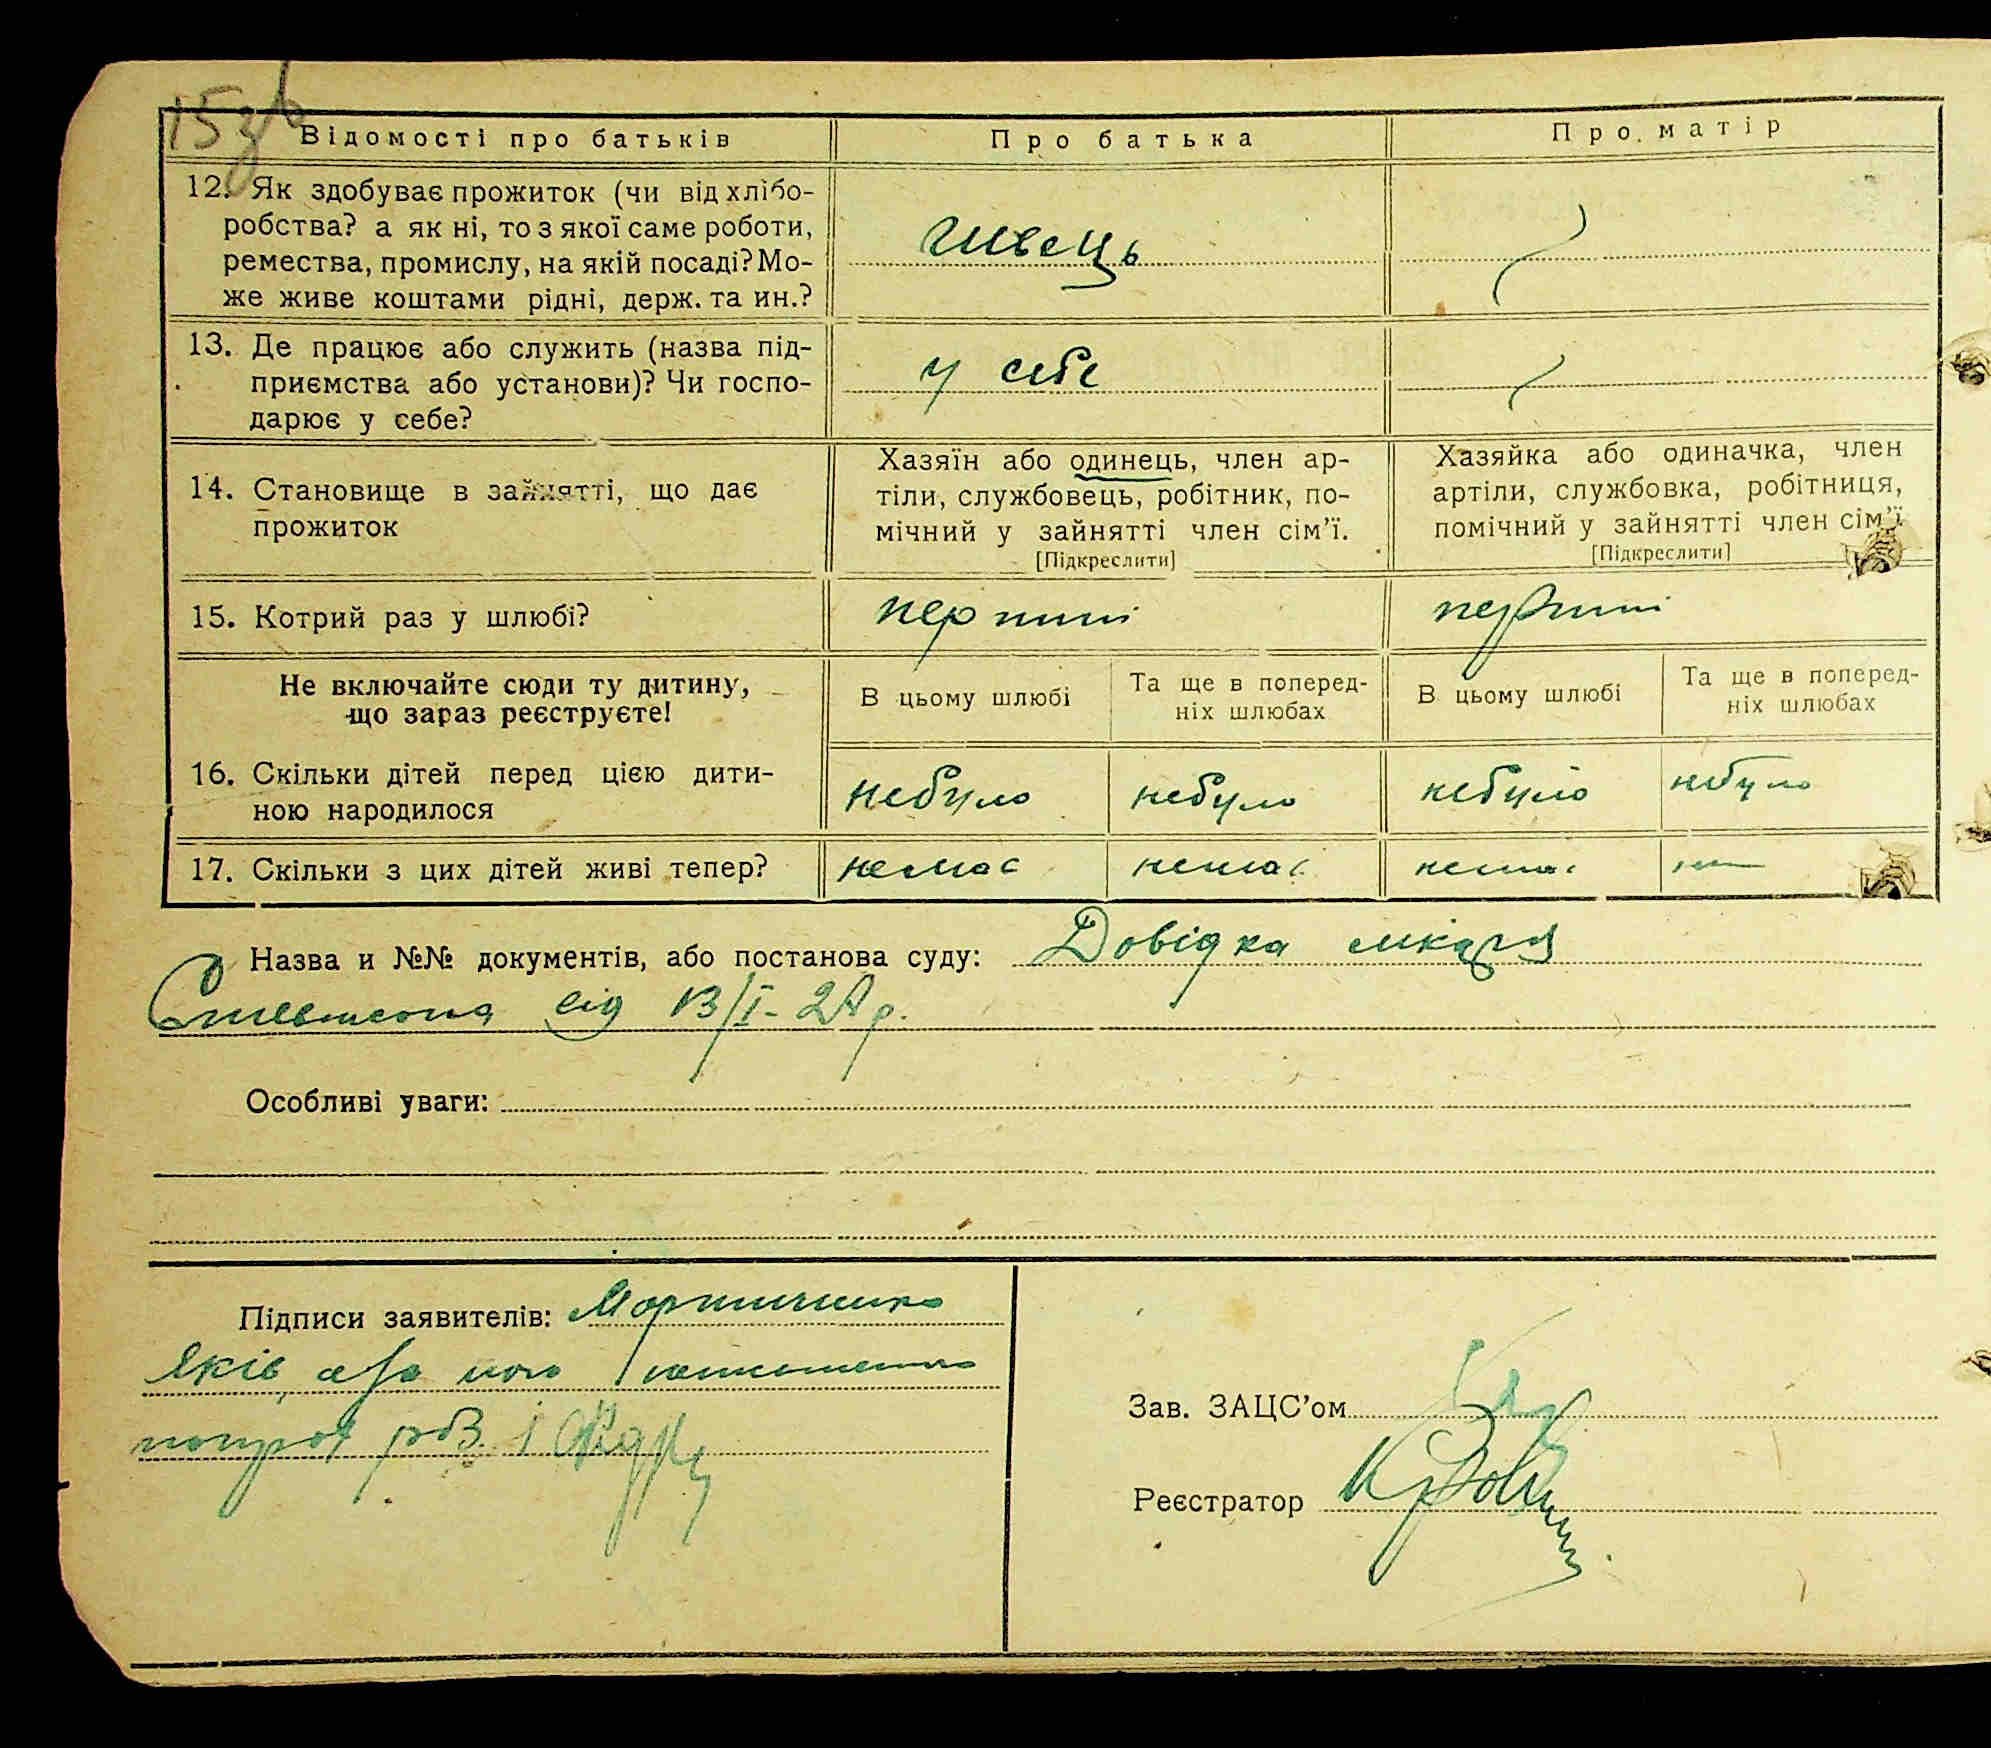 15зв
Відомості про батьків
Про батька
Про матір
12. Як здобуває прожиток (чи від хлібо-
робства? а як ні, то з якої саме роботи,
ремества, промислу, на якій посаді? Мо-
же живе коштами рідні, держ. та ин.?
швець
13. Де працює або служить (назва під-
приємства або установи)? Чи госпо-
дарює у себе?
у себе
14. Становище в зайнятті, що дає
прожиток
Хазяїн або одинець, член ар-
тіли, службовець, робітник, по-
мічний у зайнятті член сім'ї.
[Підкреслити]
Хазяйка або одиначка, член
артіли, службовка, робітниця,
помічний у зайнятті член сім'ї
[Підкреслити]
15. Котрий раз у шлюбі?
перший
перший
Не включайте сюди ту дитину,
що зараз реєструєте!
В цьому шлюбі
Та ще в поперед-
ніх шлюбах
В цьому шлюбі
Та ще в поперед-
ніх шлюбах
16. Скільки дітей перед цією дити-
ною народилося
небуло
небуло
небуло
небуло
17. Скільки з цих дітей живі тепер?
немає
немає
немає
Назва и №№ документів, або постанова суду: Довідка лікаря
від 13/I-
Особливі уваги:
Підписи заявителів:
Яків
Зав. ЗАЦС'ом
Реєстратор